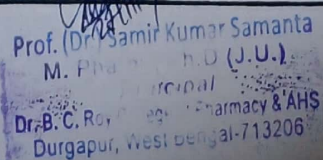 Prof. (Dr.) Samir Kumar Samanta
M. Ph.D (J.U.)
Dr. B. C. Roy Pharmacy & AHS
Durgapur, West Bengal-713206